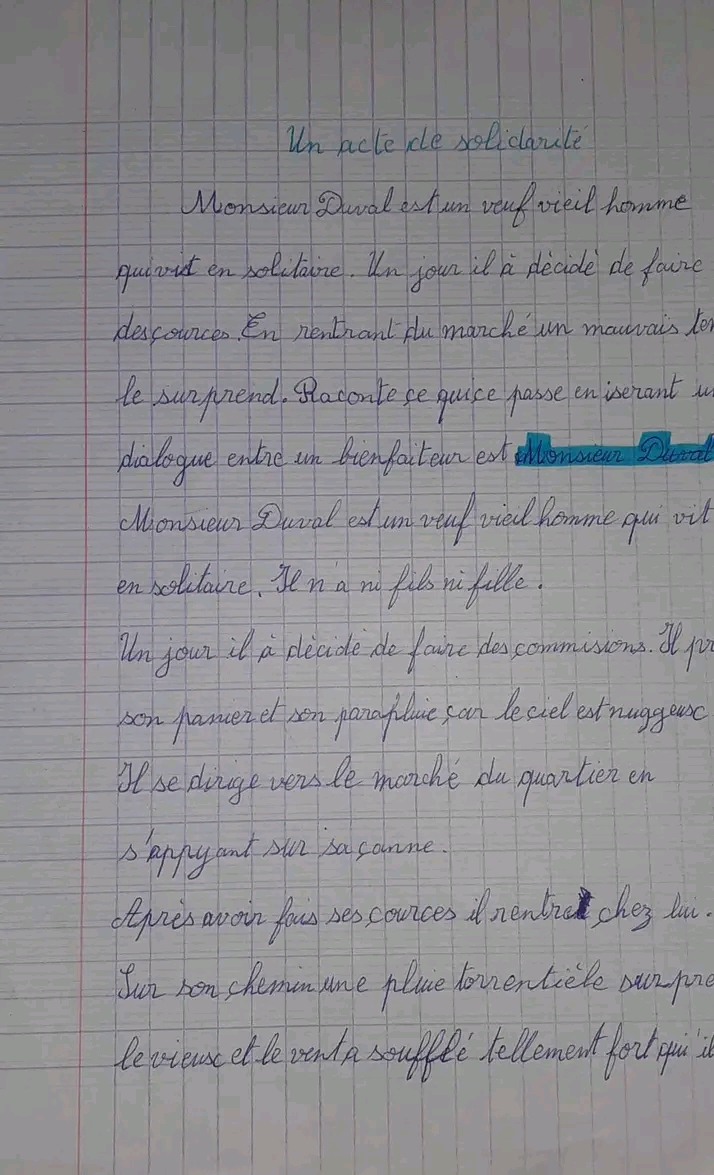 Un acte de solidarité
Monsieur Duval est un veuf vieil homme
qui vit en solitaire. Un jour il à décidé de faire
des cources. En rentrant du marché un mauvais
le surprend. Raconte ce qui ce passe en iserant
dialogue entre un bienfaiteur est Monsieur Duval
Monsieur Duval est un veuf vieil homme qui vit
en solitaire. Il n'a ni fils ni fille.
Un jour il à décidé de faire des commisions. Il
son panier et son parapluie car le ciel est nuggeux
Il se dirige vers le marché du quartier en
s'appyant sur sa canne.
Après avoir fais ses cources il rentre chez lui.
Sur son chemin une pluie torrentièle
le vieux et le vent a soufflé tellement fort qu'il